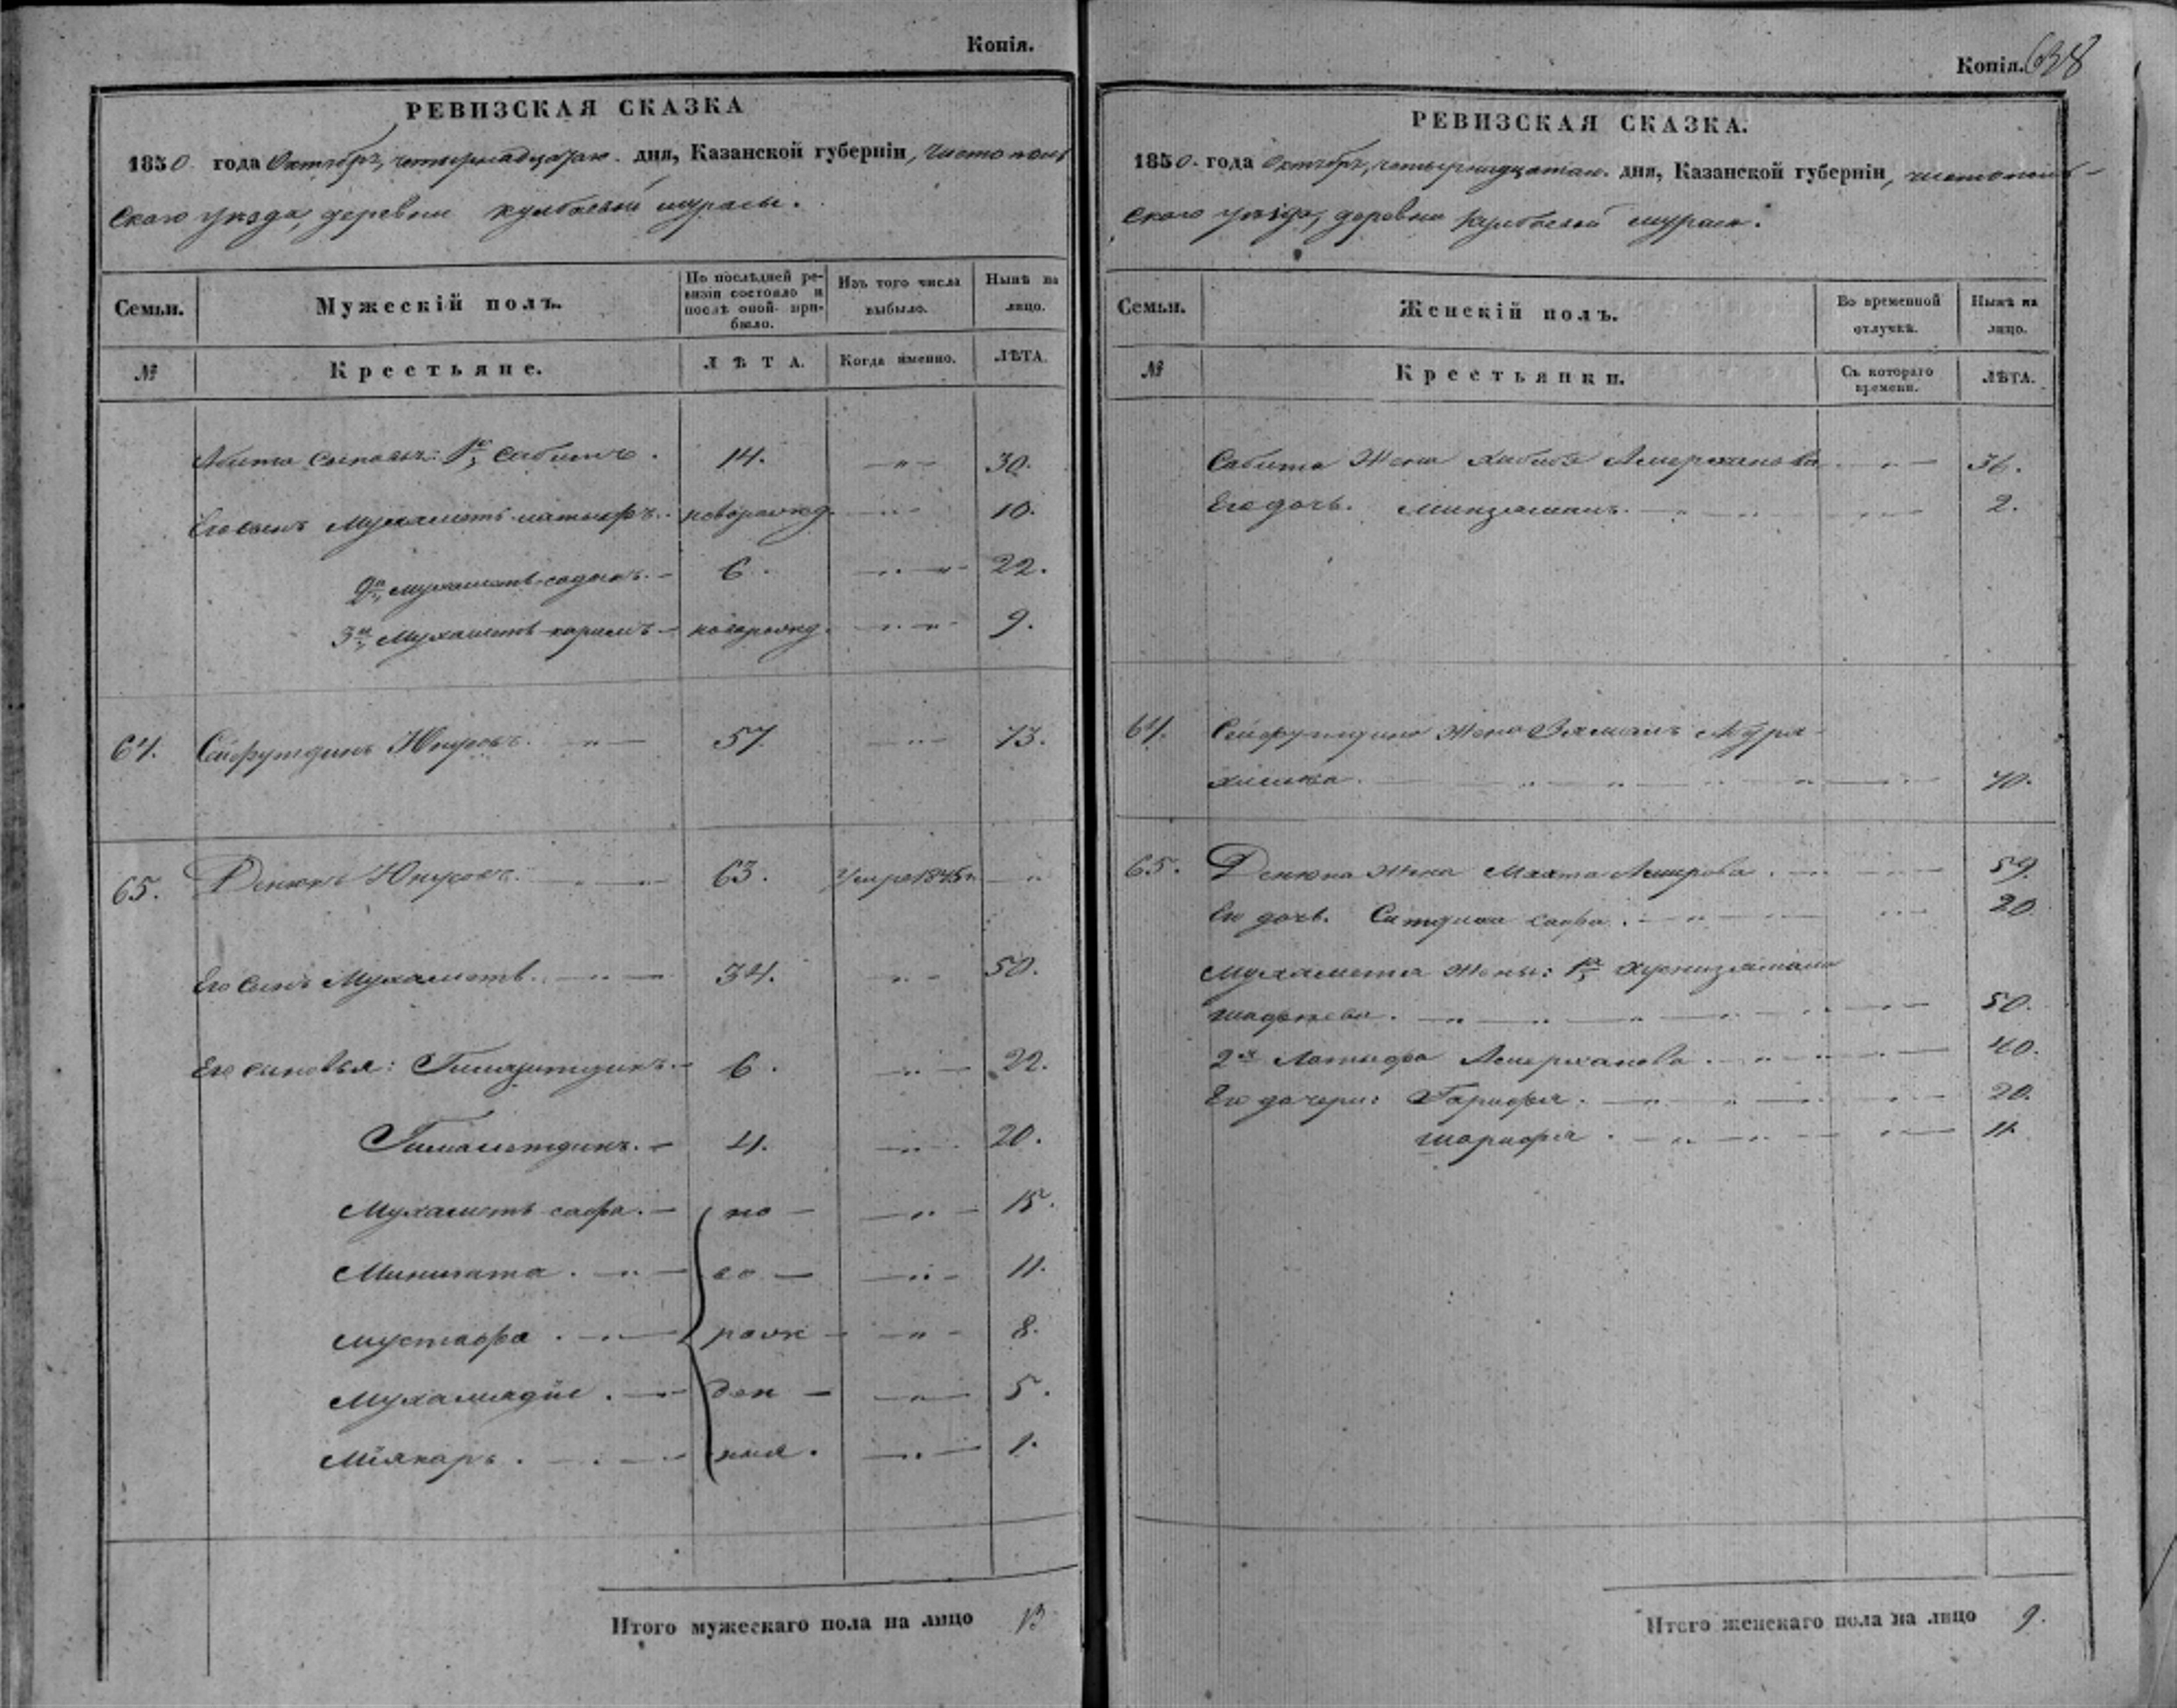 Копія.
РЕВИЗСКАЯ СКАЗКА
1850 года Октября четырнадцатаго дня, Казанской губерніи, Чистополь
скаго уѣзда, деревни Кулбаевой мурасы.
Семьи.
Мужескій полъ.
По послѣдней ре-
визіи состояло и
послѣ оной при-
было.
Изъ того числа
выбыло.
Нынѣ на
лицо.
№
Крестьяне.
ЛѢТА.
Когда именно.
ЛѢТА.
сыновья: 1й Сабитъ. 14. 30.
Его сынъ Мухаметь-латыфъ. новорожд. 10.
2й Мухаметь-садыкъ. 6. 22.
3й Мухаметь-каримъ новорожд. 9.
64. Сейфутдинъ Юнусовъ. 57. 73.
65. Юнусовъ. 63. Умре 1845 г.
Его сынъ Мухаметь. 34. 50.
Его сыновья: 6. 22.
Гимаметдинъ. 4. 20.
Мухаметь-сафа. но 15.
Минигата. во 11.
Мустафа. рож 8.
Мухамадій. ден 5.
Міякаръ. ныя. 1.
Итого мужескаго пола на лицо 13
Копія. 638
РЕВИЗСКАЯ СКАЗКА.
1850. года Октября четырнадцатаго дня, Казанской губерніи, чистополь-
скаго уѣзда, деревни Кулбаевой мураси.
Семьи.
Женскій полъ.
Во временной
отлучкѣ.
Нынѣ на
лицо.
№
Крестьянки.
Съ котораго
времени.
ЛѢТА.
Сабита Жена Хабиба Амерханова 36.
Его дочь. Минзямаль. 2.
64. Сейфутдина Жена Зямаль
40.
65. Жена Амирова. 59.
Его дочь. сафа. 20.
Мухаметя Жены: 1я Хуснизямаль
50.
2я Латыфа Амерханова. 40.
Его дочери: Гарифа. 20.
шарифа. 11.
Итого женскаго пола на лицо 9.